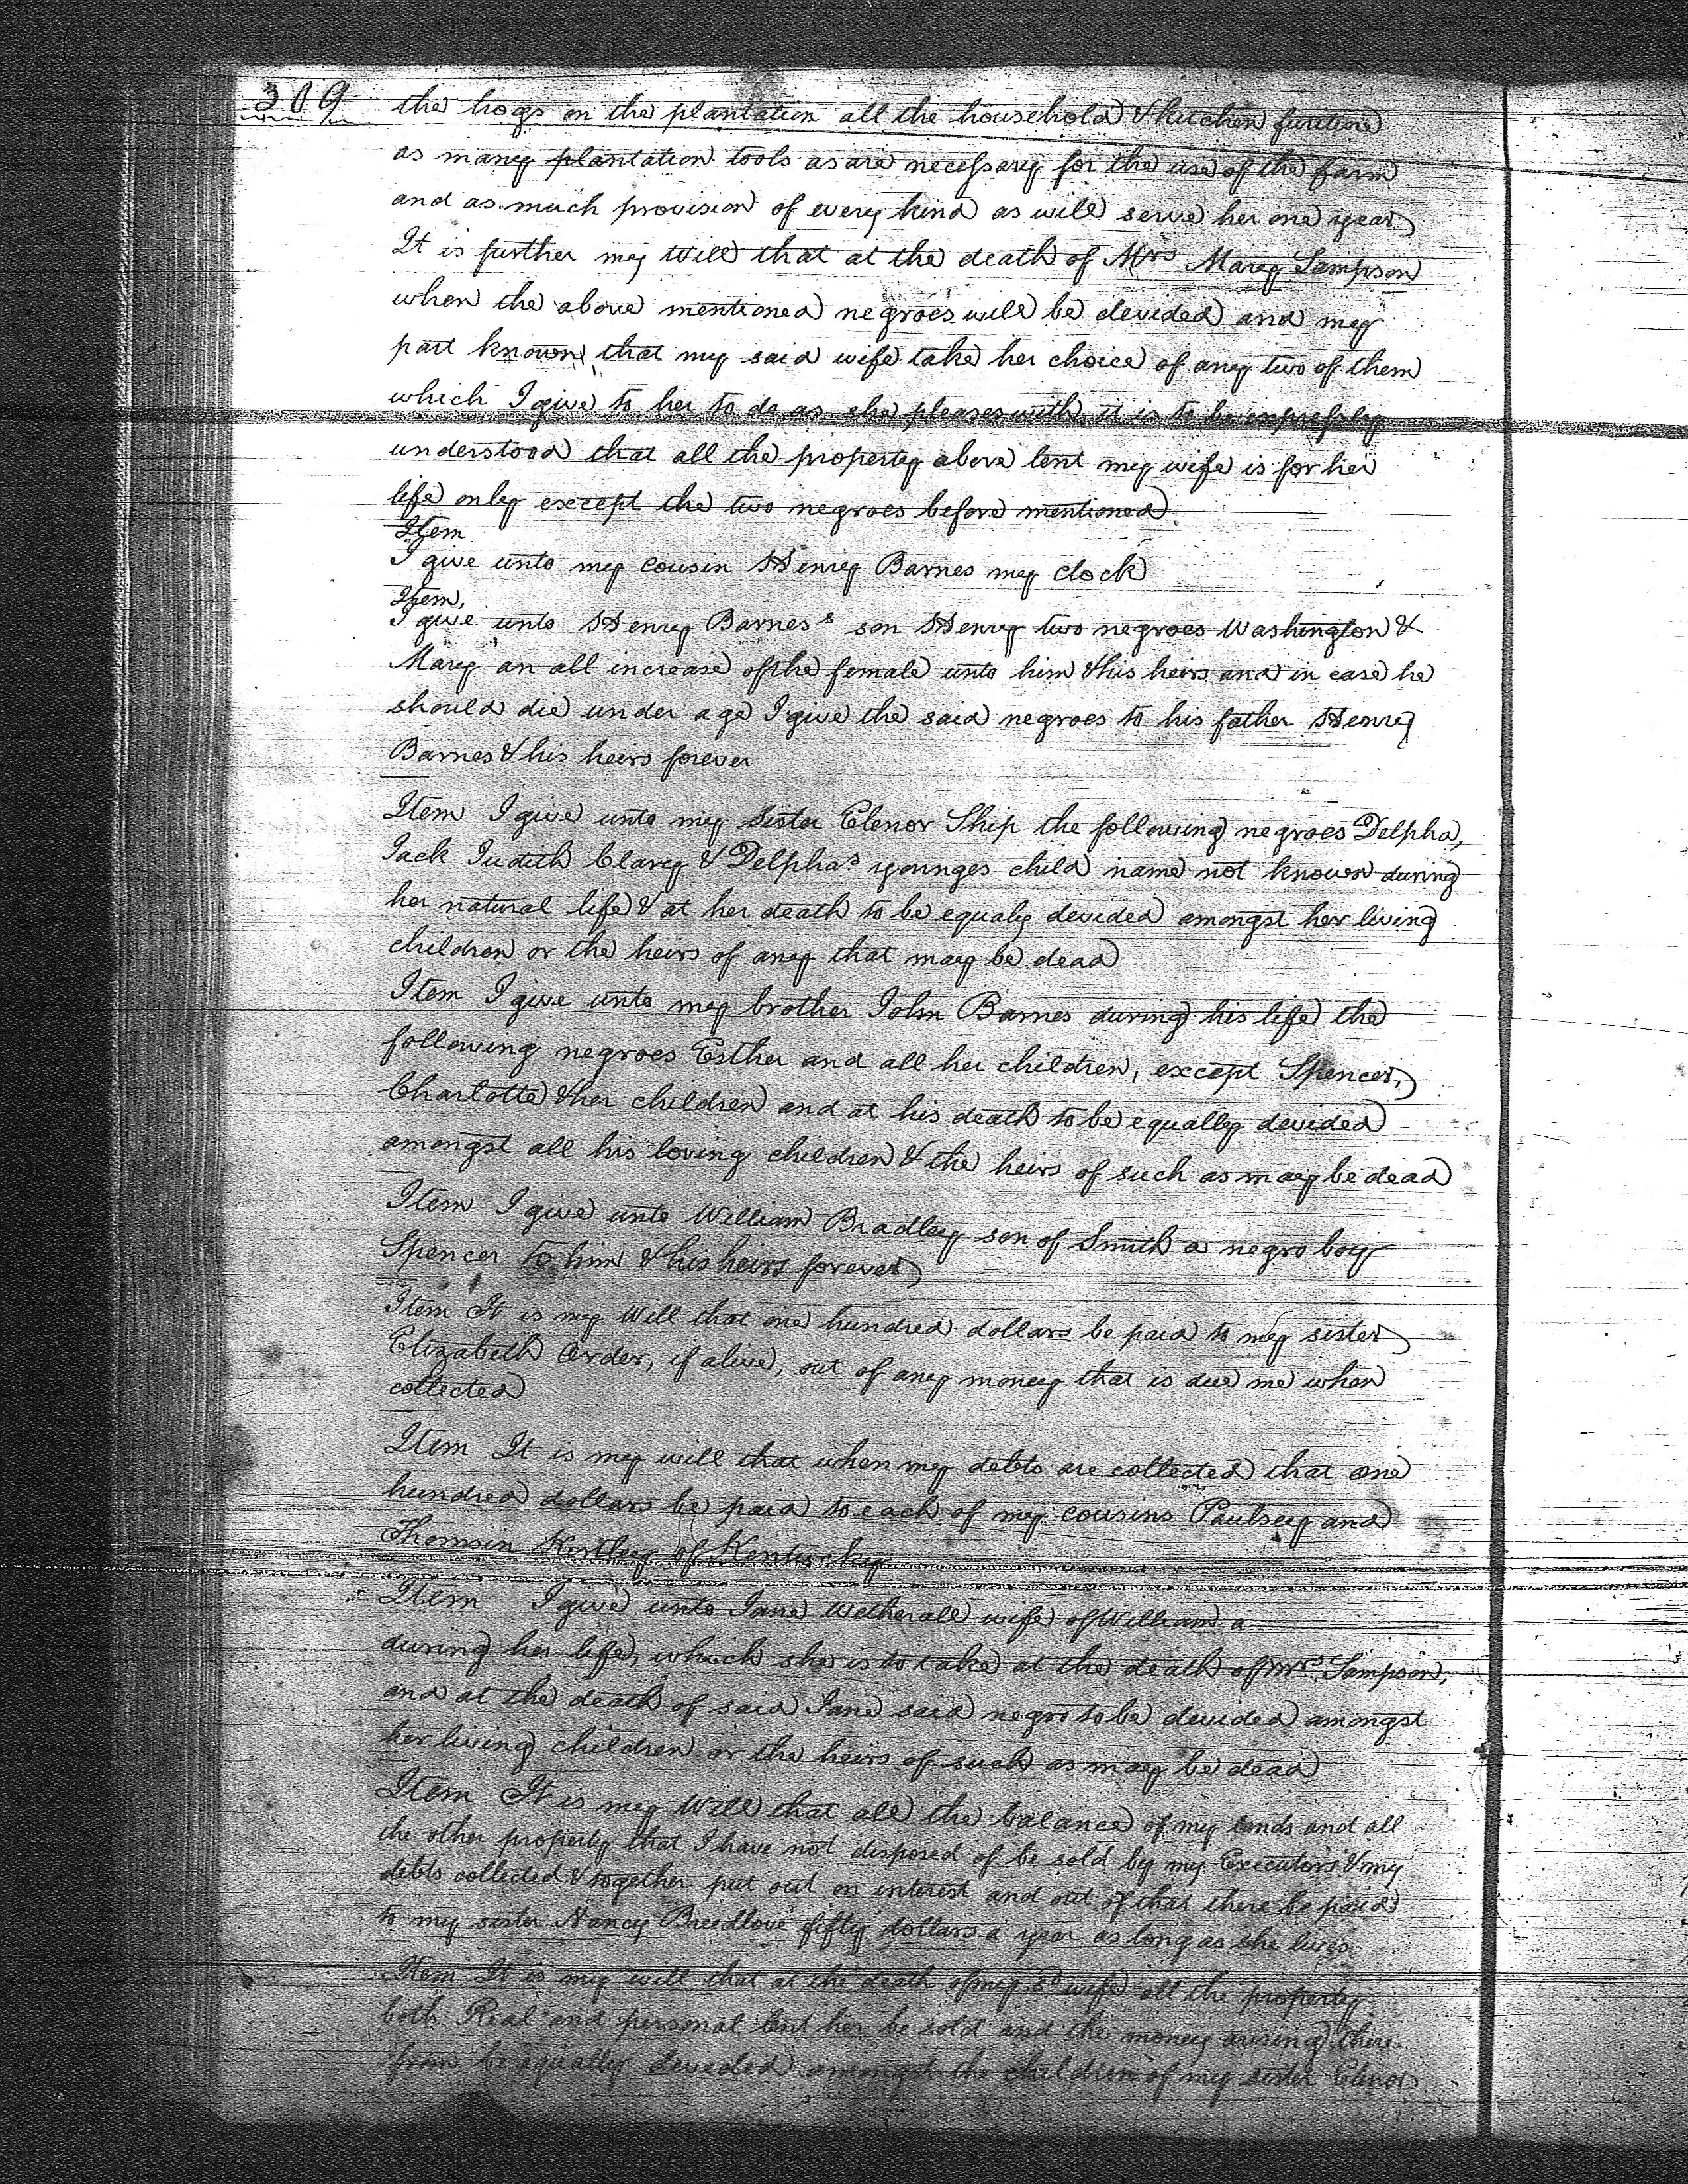 309
the hogs on the plantation all the household & kitchen furiture
as many plantation tools as are necessary for the use of the farm
and as much provision of every kind as will serve her one year
It is further my Will that at the death of Mrs Mary Sampson
when the above mentioned negroes will be devided and my
part known, that my said wife take her choice of any two of them
which I give to her to do as she pleases with, it is to be expressly
understood that all the property above lent my wife is for her
life only except the two negroes before mentioned
Item
I give unto my cousin Henry Barnes my clock
Item,
I give unto Henry Barnes's son Henry two negroes Washington &
Mary an all increase of the female unto him & his heirs and in case he
should die under age I give the said negroes to his father Henry
Barnes & his heirs forever
Item I give unto my Sister Elenor Ship the following negroes Delpha,
Jack Judith Clary & Delpha's younges child name not known during
her natural life & at her death to be equaly devided amongst her living
children or the heirs of any that may be dead
Item I give unto my brother John Barnes during his life the
following negroes Esther and all her children, except Spencer,
Charlotte & her children and at his death to be equally devided
amongst all his loving children & the heirs of such as may be dead
Item I give unto William Bradley son of Smith a negro boy
Spencer to him & his heirs forever
Item It is my Will that one hundred dollars be paid to my sister
Elizabeth Order, if alive, out of any money that is due me when
collected
Item It is my will that when my debts are collected that one
hundred dollars be paid to each of my cousins Paulsey and
Thomsin Kirtley of Kentucky
Item I give unto Jane Wetherall wife of William a
during her life, which she is to take at the death of Mrs Sampson,
and at the death of said Jane said negro to be devided amongst
her living children or the heirs of such as may be dead
Item It is my Will that all the balance of my lands and all
the other property that I have not disposed of be sold by my Executors & my
debts collected & together put out on interest and out of that there be paid
to my sister Nancy Breedlove fifty dollars a year as long as she lives
Item It is my will that at the death of my sd wife all the property
both Real and personal lent her be sold and the money arising there
from be equally devided amongst the children of my sister Elenor